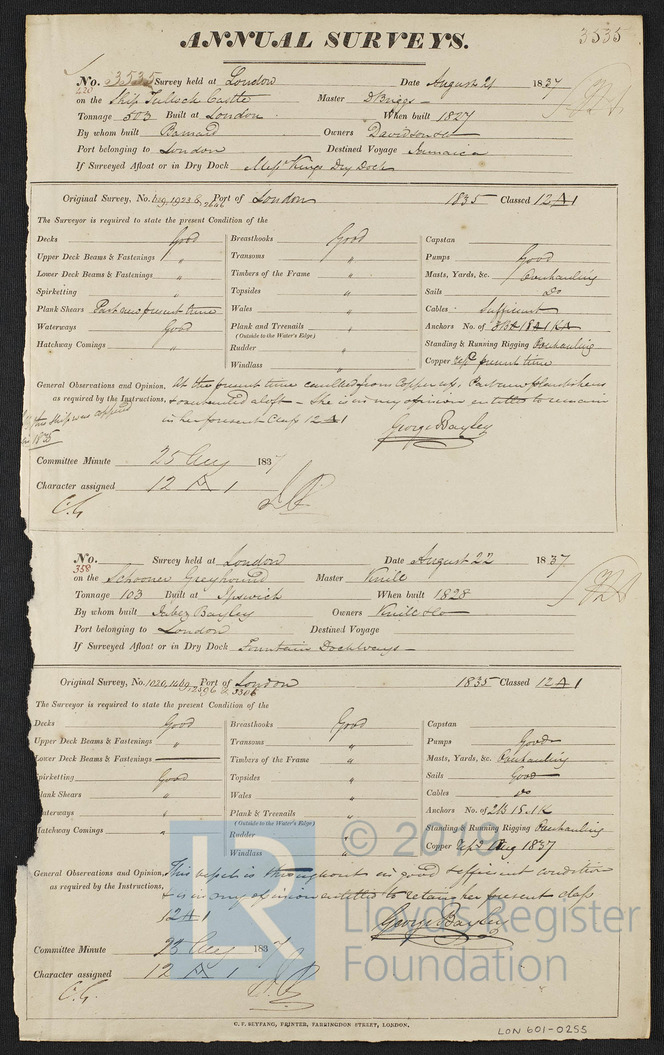 3535
ANNUAL SURVEYS.
No. 3535 Survey held at London Date August 21 1837
420
on the Ship Tulloch Castle Master D Briggs
Tonnage 503 Built at London When built 1827
By whom built Barnard Owners Davidson &Co
Port belonging to London Destined Voyage Jamaica
If Surveyed Afloat or in Dry Dock Messrs Kings Dry Dock
Original Survey, No. 1923 & 2646 Port of London 1835 Classed 12 A 1
The Surveyor is required to state the present Condition of the
Decks Good
Upper Deck Beams & Fastenings "
Lower Deck Beams & Fastenings "
Spirketting "
Plank Shears Part new present time
Waterways Good
Hatchway Comings "
Breasthooks Good
Transoms "
Timbers of the Frame "
Topsides "
Wales "
Plank and Treenails "
(Outside to the Water's Edge)
Rudder "
Windlass "
Capstan
Pumps Good
Masts, Yards, &c. Overhauling
Sails Do
Cables Sufficient
Anchors No. of 3 B A 1 S A 1 K A
Standing & Running Rigging Overhauling
Copper Repd present time
General Observations and Opinion, At the present time caulked from Copper up, Part new Planksheers
as required by the Instructions, & aloft - She is in my opinion entitled to remain
in her present Class 12 A 1
George Bayley
this ship was
in 1835
Committee Minute 25 Aug 1837
Character assigned 12 A 1
C.G.
No. Survey held at London Date August 22 1837
358
on the Schooner Greyhound Master Knill
Tonnage 103 Built at Ipswich When built 1828
By whom built Jabez Bayley Owners Knill & Co
Port belonging to London Destined Voyage
If Surveyed Afloat or in Dry Dock Fountain Dock
Original Survey, No. 1020, 1469, 12596 & 3306 Port of London 1835 Classed 12 A 1
The Surveyor is required to state the present Condition of the
Decks Good
Upper Deck Beams & Fastenings "
Lower Deck Beams & Fastenings
Spirketting Good
Plank Shears "
Waterways "
Hatchway Comings "
Breasthooks Good
Transoms "
Timbers of the Frame "
Topsides "
Wales "
Plank & Treenails "
(Outside to the Water's Edge)
Rudder "
Windlass "
Capstan
Pumps Good
Masts, Yards, &c. Overhauling
Sails Good
Cables Do
Anchors No. of 2 B 1 S . 1 K
Standing & Running Rigging Overhauling
Copper Repd Aug 1837
General Observations and Opinion, This vessel is throughout in good & efficient condition
as required by the Instructions, & is in my opinion entitled to retain her present class
12 A 1
George Bayley
Committee Minute 25 Aug 1837
Character assigned 12 A 1
C.G.
© 2019
LR
Lloyd's Register
Foundation
C. F. SEYFANG, PRINTER, FARRINGDON STREET, LONDON.
LON 601-0255